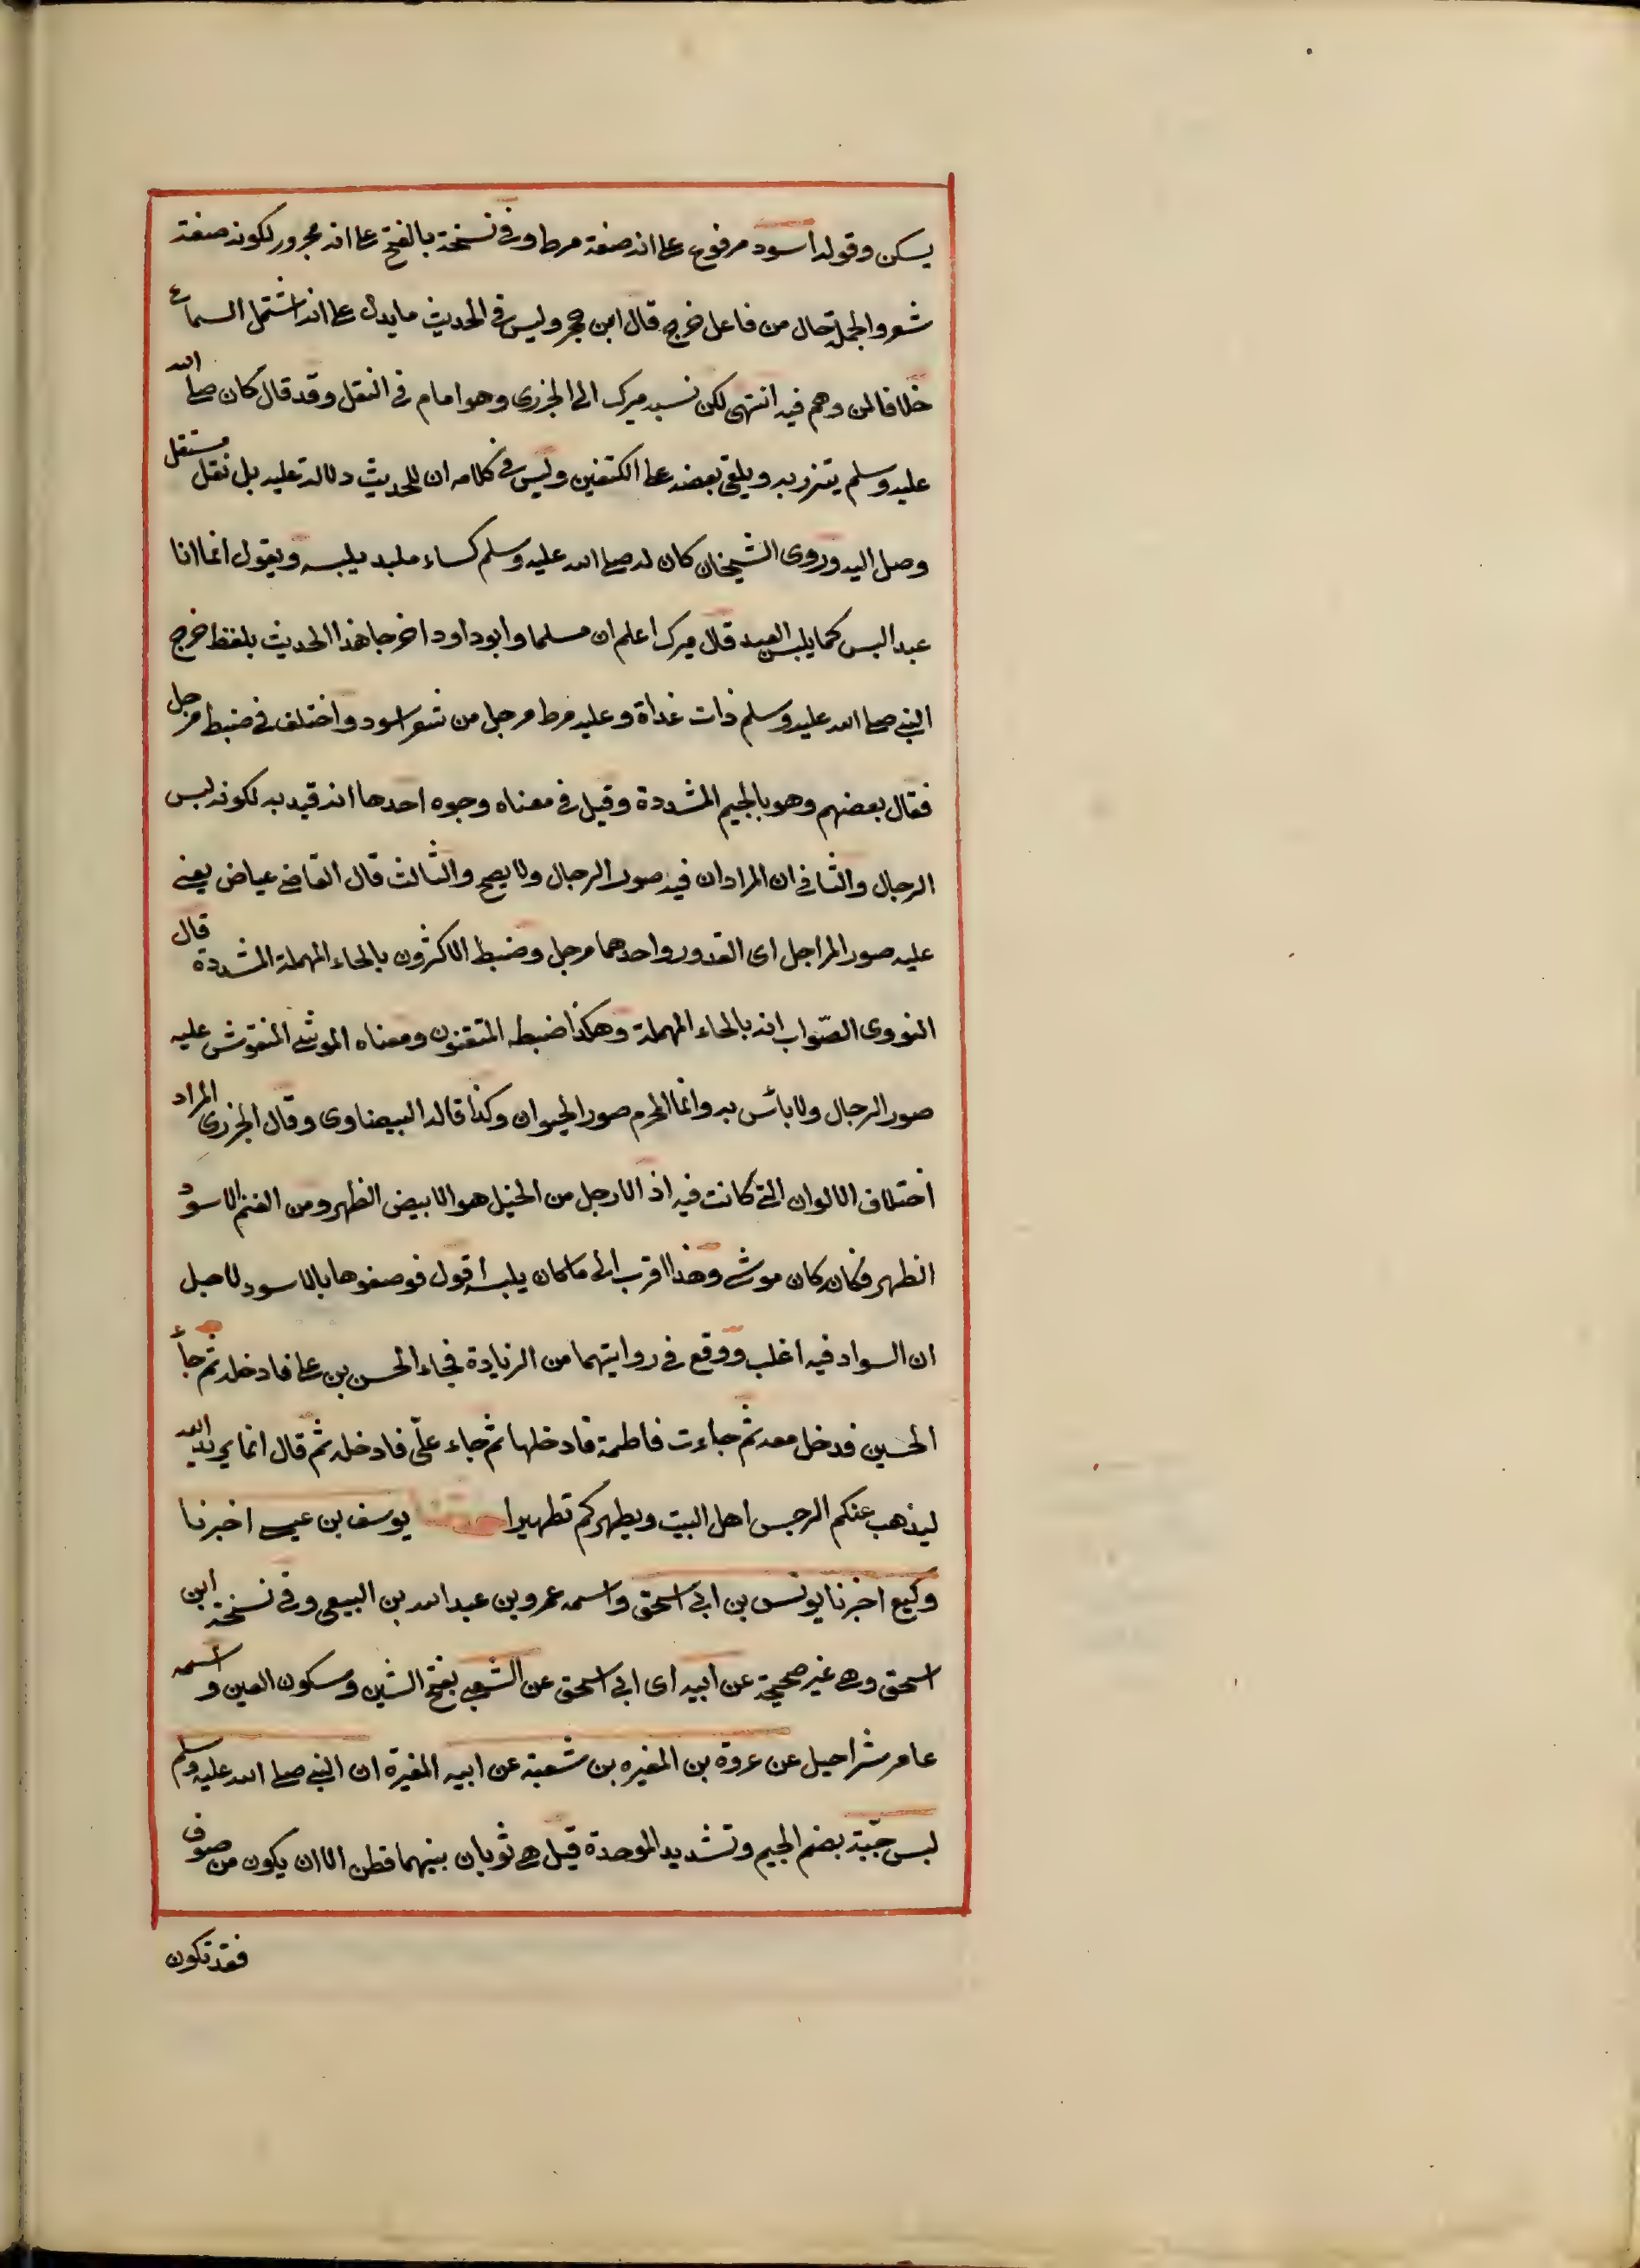 يسكن وقوله اسود مرفوع على انه صفة مرط وفي نسخة بالفتح على انه مجرور لكونه صفة
شعر والجملة حال من فاعل خرج قال ابن حجر وليس في الحديث ما يدل على انه اشتمل السماء
خلافا لمن وهم فيه انتهى لكن نسبه ميرك الى الجزري وهو امام في النقل وقد قال كان صلى الله
عليه وسلم يتزر به ويلقى بعضه على الكتفين وليس في كلامه ان للحديث دلالة عليه بل نقل مستقل
وصل اليه وروى الشيخان كان له صلى الله عليه وسلم كساء ملبد يلبسه ويقول انما انا
عبد البس كما يلبس العبد قال ميرك اعلم ان مسلما وابو داود اخرجا هذا الحديث بلفظ خرج
النبي صلى الله عليه وسلم ذات غداة وعليه مرط مرجل من شعر اسود واختلف في ضبط مرجل
فقال بعضهم وهو بالجيم المشددة وقيل في معناه وجوه احدها انه قيد به لكونه لبس
الرجال والثاني ان المراد ان فيه صور الرجال ولا يصح والثالث قال القاضي عياض يعني
عليه صور المراجل اى القدور واحدهما مرجل وضبط الاكثرون بالحاء المهملة المشددة قال
النووى الصّواب انه بالحاء المهملة وهكذا ضبطه المتقنون ومعناه الموشى المنقوش عليه
صور الرجال ولا بأس به وانما المحرم صور الحيوان وكذا قاله البيضاوى وقال الجزرى المراد
اختلاف الالوان التي كانت فيه اذ الارجل من الخيل هو الابيض الظهر ومن الغنم الاسود
الظهر فكانه كان موشى وهذا اقرب الى ما كان يلبسه اقول فوصفوها بالاسود لاجل
ان السواد فيه اغلب ووقع في روايتهما من الزيادة فجاء الحسن بن على فادخله ثم جاء
الحسين فدخل معه ثم جاءت فاطمة فادخلها ثم جاء علىّ فادخله ثم قال انما يريد الله
ليذهب عنكم الرجس اهل البيت ويطهركم تطهيرا حدثنا يوسف بن عيسى اخبرنا
وكيع اخبرنا يونس بن ابي اسحق واسمه عمرو بن عبد الله بن البيعى وفي نسخة ابن
اسحق وهى غير صحيحة عن ابيه اى ابي اسحق عن الشعبي بفتح الشين وسكون العين واسمه
عامر شراحيل عن عروة بن المغيره بن شعبة عن ابيه المغيرة ان النبي صلى الله عليه وسلم
لبس جبّة بضم الجيم وتشديد الموحدة قيل هى ثوبان بينهما قطن الا ان يكون من صوف
فقد تكون